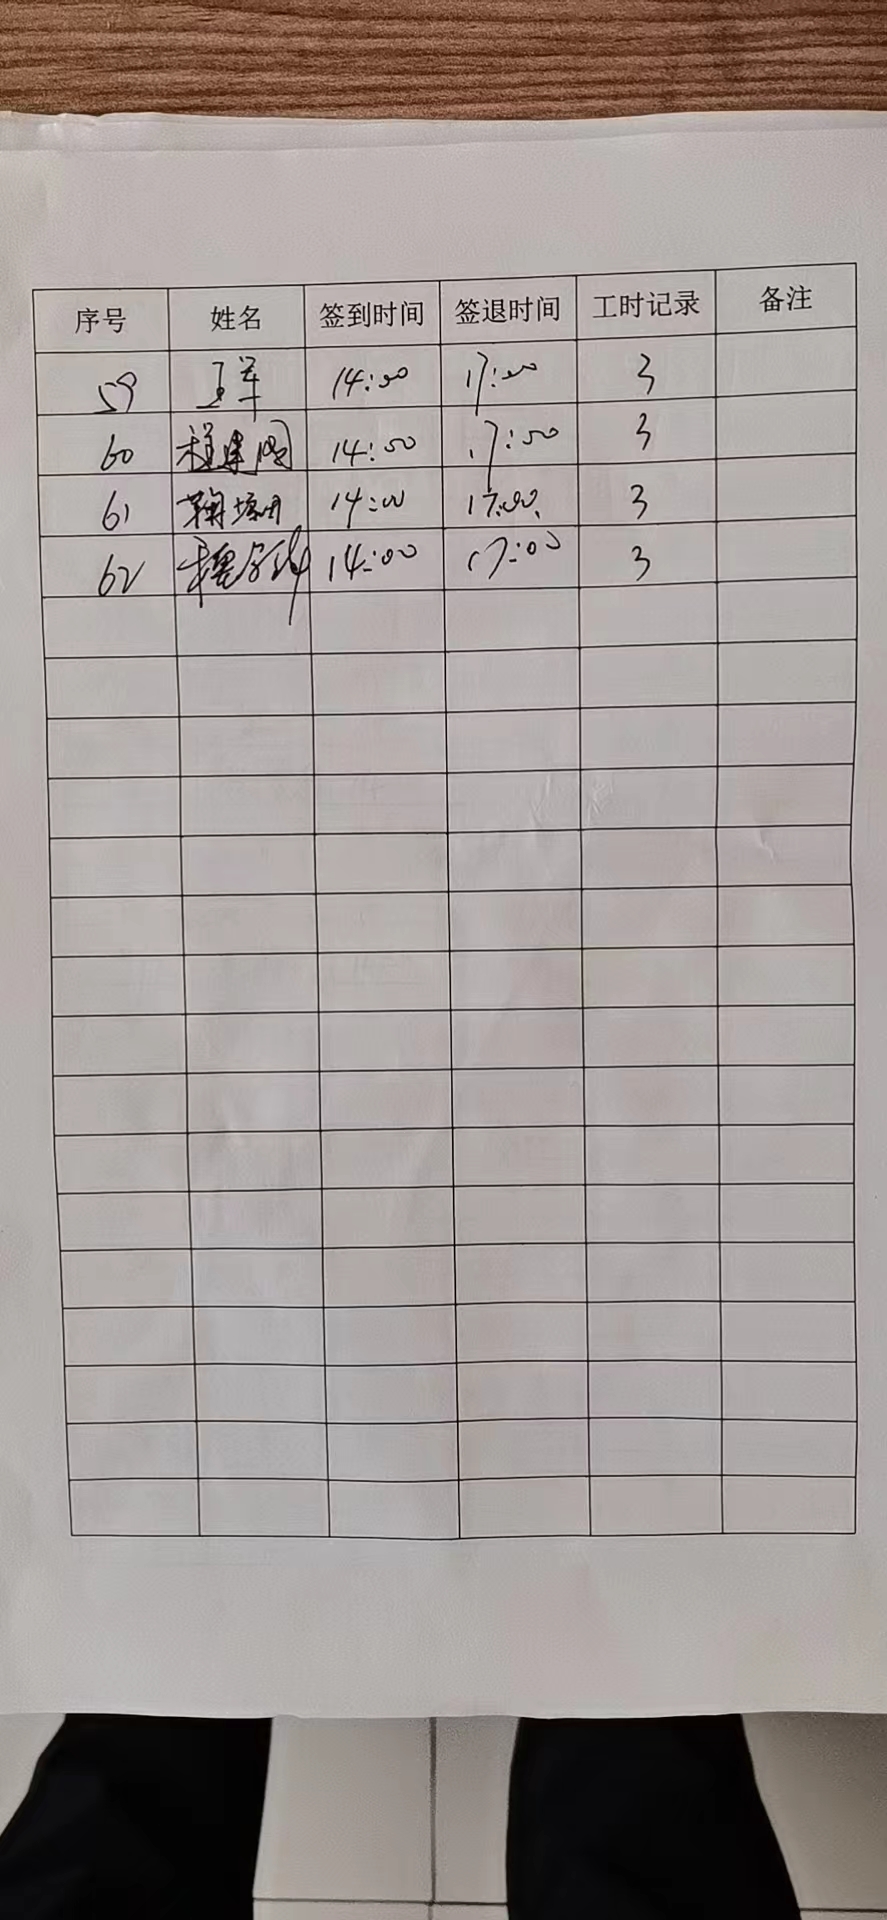 序号 姓名 签到时间 签退时间 工时记录 备注
59 王军 14:00 17:00 3
60 程建国 14:00 17:00 3
61 14:00 17:00 3
62 14:00 17:00 3